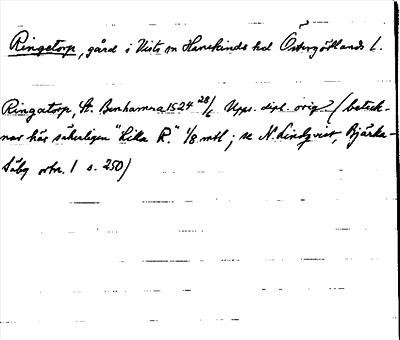 Ringetorp, gård i Vists sn Hanekinds hd Östergötlands l.
Ringatorp, St. Benhamra 1524 28/6 Upps. dipl. orig. (beteck-
nar här säkerligen "Lilla R." 1/8 mtl; se N. Lindqvist, Bjärka-
Säby ortn. 1 s. 250)